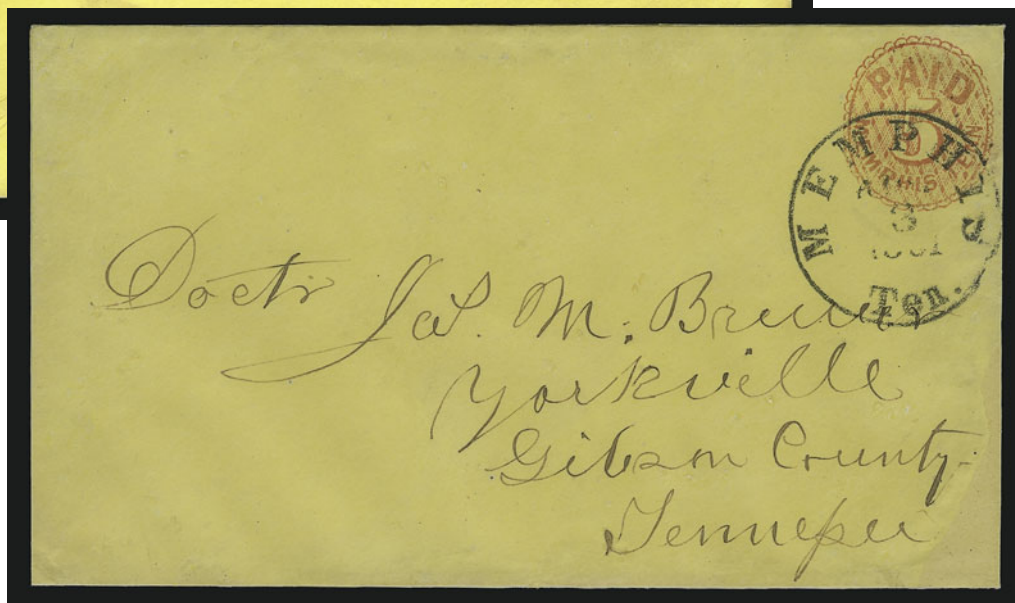 PAID
5
MEMPHIS
MEMPHIS
3
1861
Ten.
Doctr Jas. M. Bruner
Yorkville
Gibson County
Tennessee